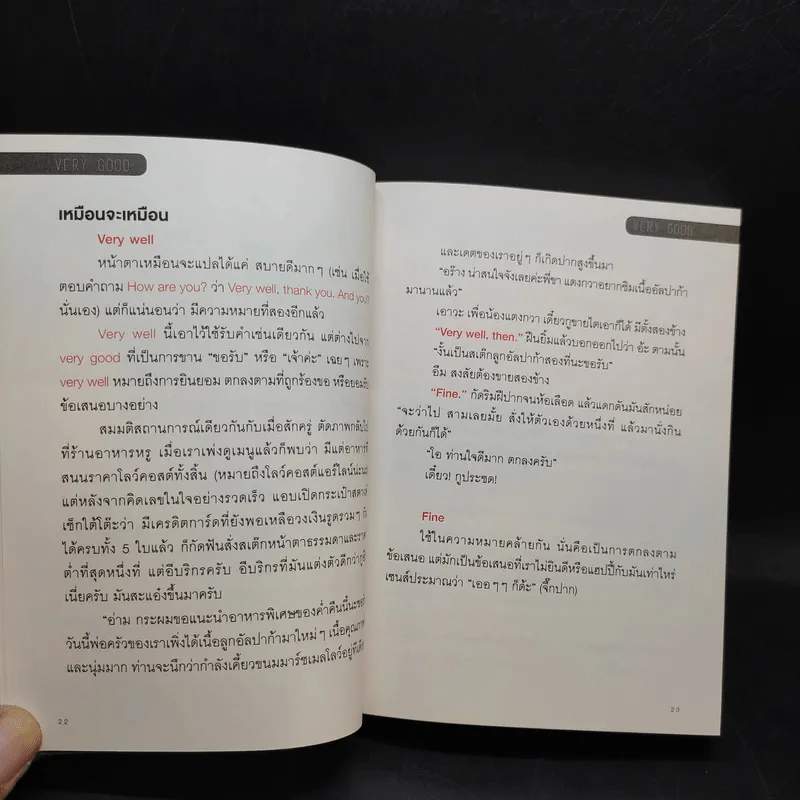 VERY GOOD
เหมือนจะเหมือน
Very well
หน้าตาเหมือนจะแปลได้แค่ สบายดีมากๆ (เช่น เมื่อใช้
ตอบคำถาม How are you? ว่า Very well, thank you. And you?
นั่นเอง) แต่ก็แน่นอนว่า มีความหมายที่สองอีกแล้ว
Very well นี้เอาไว้ใช้รับคำเช่นเดียวกัน แต่ต่างไปจาก
very good ที่เป็นการขาน “ขอรับ” หรือ “เจ้าค่ะ” เฉยๆ เพราะ
very well หมายถึงการยินยอม ตกลงตามที่ถูกร้องขอ หรือยอมรับ
ข้อเสนอบางอย่าง
สมมติสถานการณ์เดียวกันกับเมื่อสักครู่ ตัดภาพกลับไป
ที่ร้านอาหารหรู เมื่อเราเพ่งดูเมนูแล้วก็พบว่า มีแต่อาหารที่
สนนราคาโลว์คอสต์ทั้งสิ้น (หมายถึงโลว์คอสต์แอร์ไลน์น่ะนะ)
แต่หลังจากคิดเลขในใจอย่างรวดเร็ว แอบเปิดกระเป๋าสตางค์
เช็กใต้โต๊ะว่า มีเครดิตการ์ดที่ยังพอเหลือวงเงินรูดรวมๆ
ได้ครบทั้ง 5 ใบแล้ว ก็กัดฟันสั่งสเต๊กหน้าตาธรรมดาและราคา
ต่ำที่สุดหนึ่งที่ แต่อีบริกรครับ อีบริกรที่มันแต่งตัวดีกว่ากูอีก
เนี่ยครับ มันสะแอ๋งขึ้นมาครับ
“อ่าม กระผมขอแนะนำอาหารพิเศษของค่ำคืนนี้นะขอรับ
วันนี้พ่อครัวของเราเพิ่งได้เนื้อลูกอัลปาก้ามาใหม่ๆ เนื้อคุณภาพ
และนุ่มมาก ท่านจะนึกว่ากำลังเคี้ยวขนมมาร์ชเมลโลว์อยู่ทีเดียว
22
VERY GOOD
และเดตของเราอยู่ๆ ก็เกิดปากสูงขึ้นมา
“อร๊าง น่าสนใจจังเลยค่ะพี่ขา แตงกวาอยากชิมเนื้ออัลปาก้า
มานานแล้ว”
เอาวะ เพื่อน้องแตงกวา เดี๋ยวกูขายไตเอาก็ได้ มีตั้งสองข้าง
“Very well, then.” ฝืนยิ้มแล้วบอกออกไปว่า อ้ะ ตามนั้น
“งั้นเป็นสเต๊กลูกอัลปาก้าสองที่นะขอรับ”
อืม สงสัยต้องขายสองข้าง
“Fine.” กัดริมฝีปากจนห้อเลือด แล้วแดกดันมันสักหน่อย
“จะว่าไป สามเลยมั้ย สั่งให้ตัวเองด้วยหนึ่งที่ แล้วมานั่งกิน
ด้วยกันก็ได้”
“โอ ท่านใจดีมาก ตกลงครับ”
เดี๋ยว! กูประชด!
Fine
ใช้ในความหมายคล้ายกัน นั่นคือเป็นการตกลงตาม
ข้อเสนอ แต่มักเป็นข้อเสนอที่เราไม่ยินดีหรือแฮปปี้กับมันเท่าไหร่
เซนส์ประมาณว่า “เออๆๆ ก็ด้ะ” (จิ๊กปาก)
23